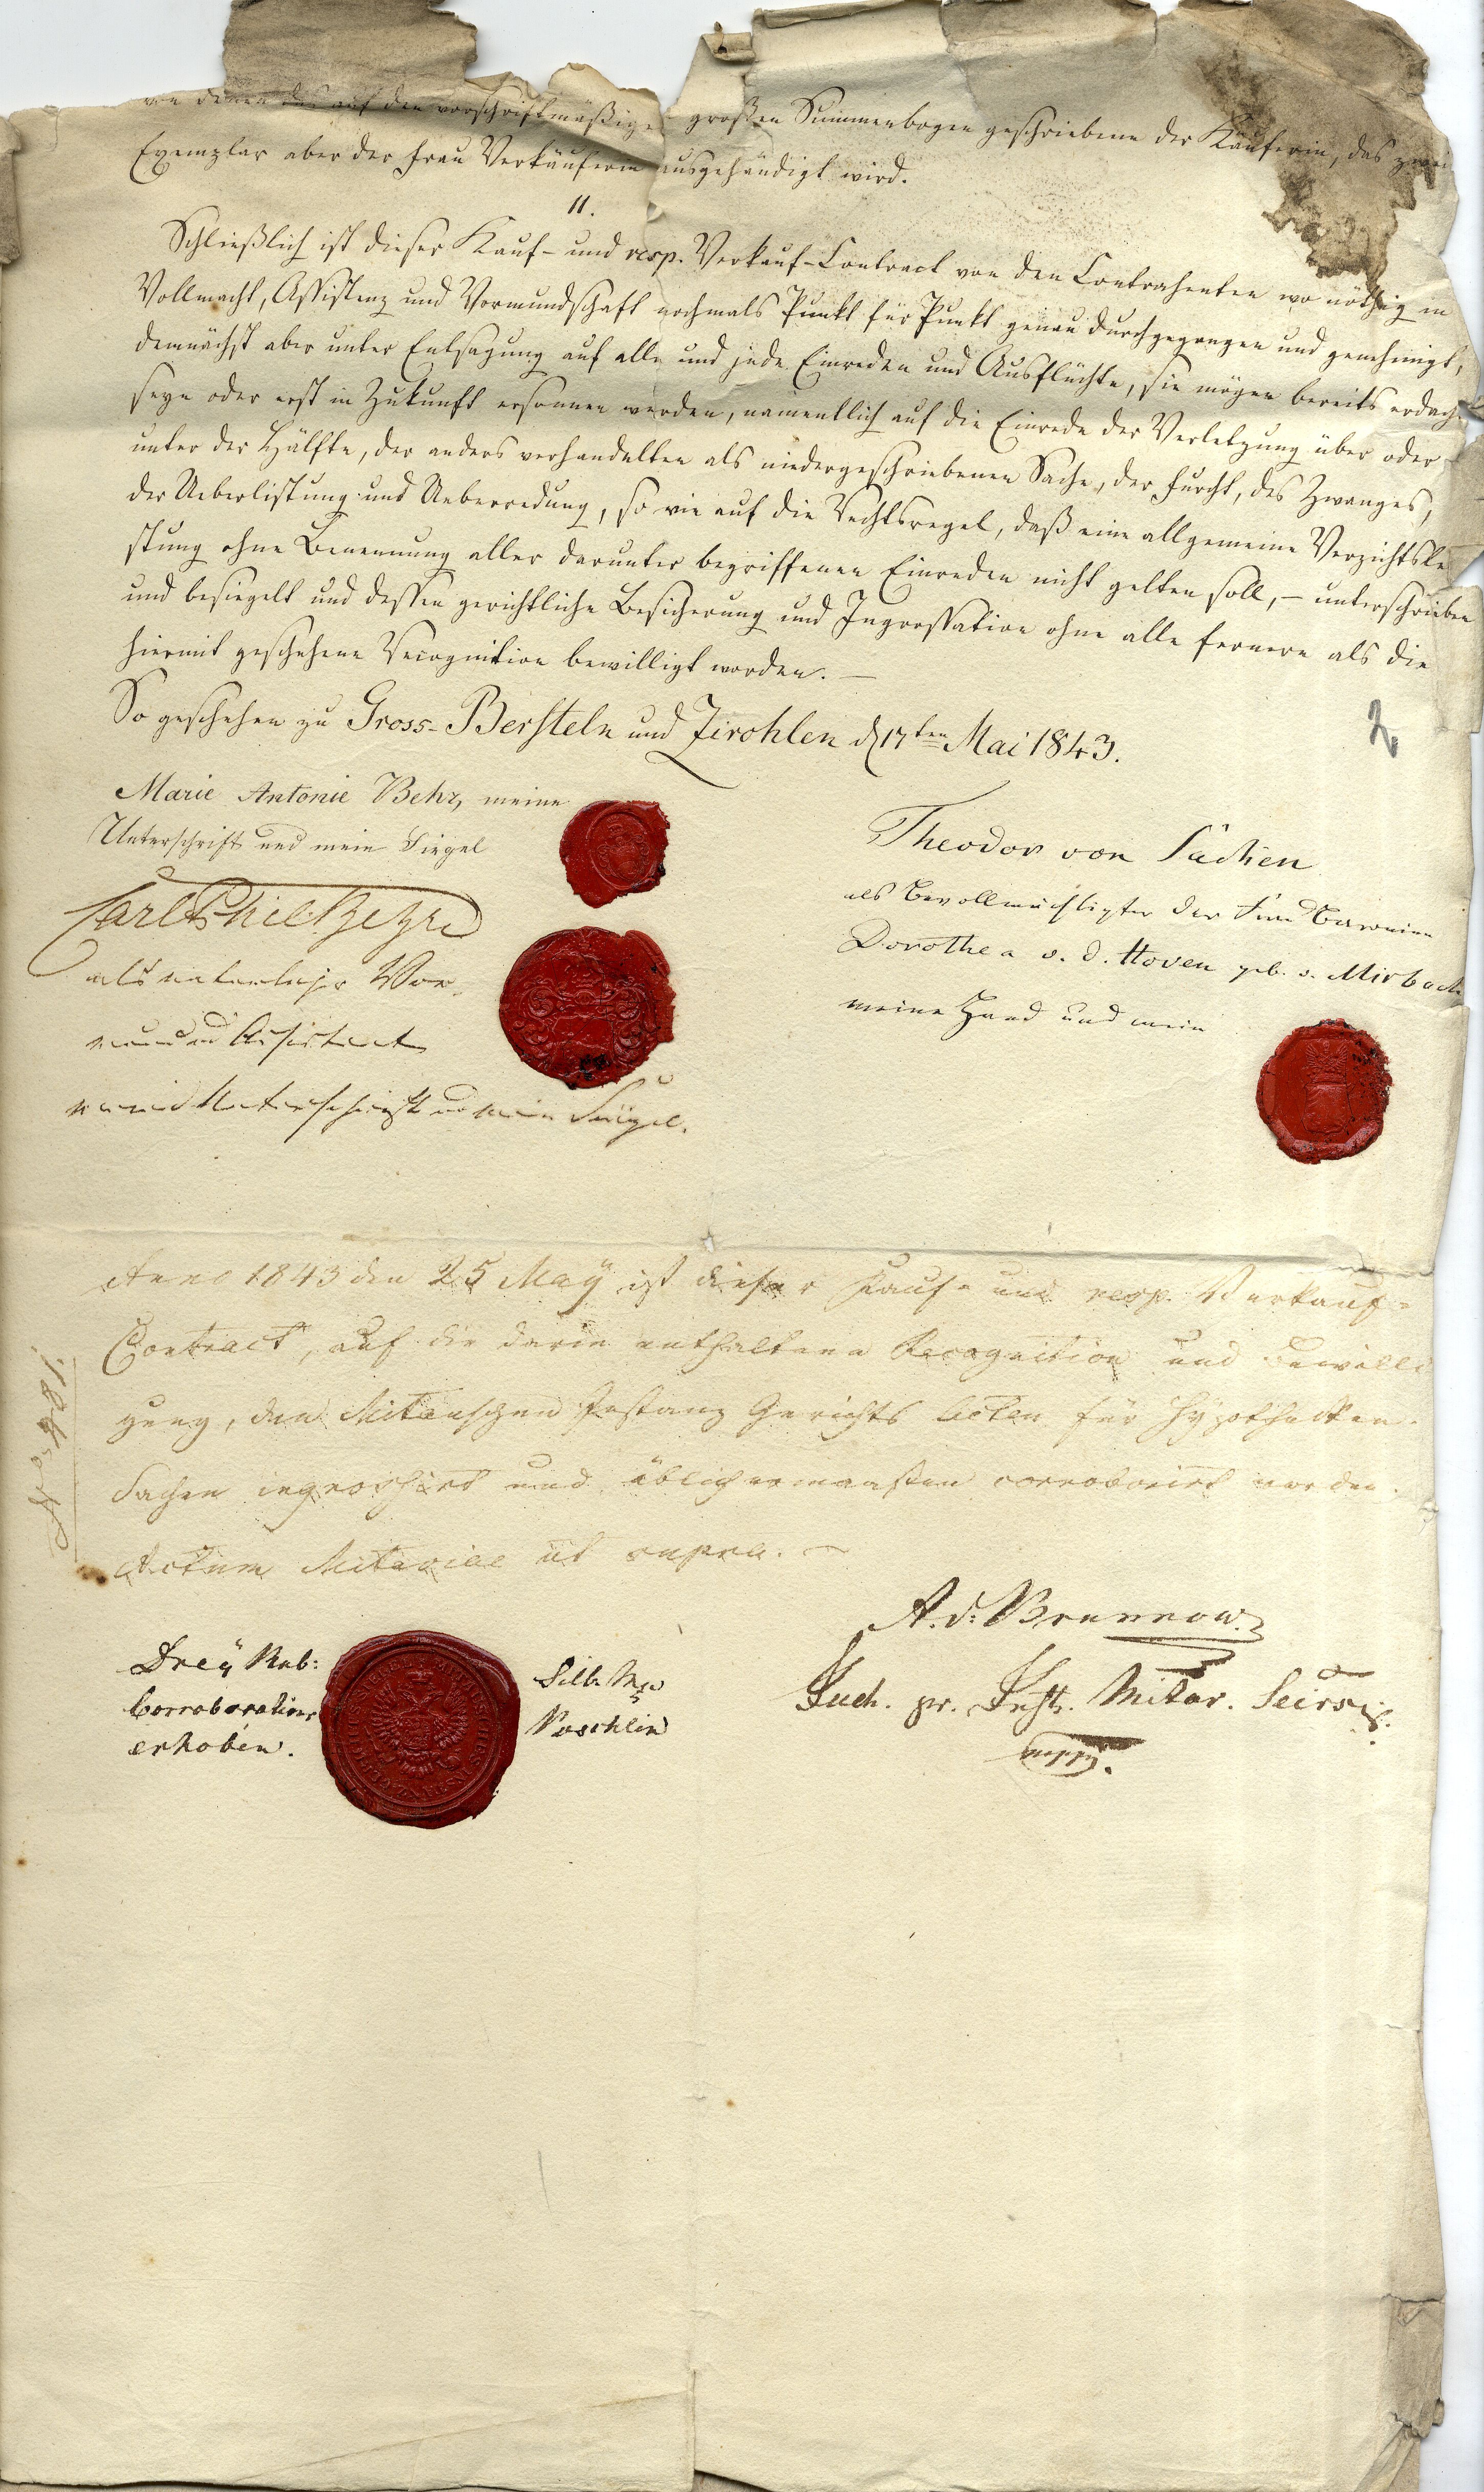 von denen das auf den vorschriftmäßigen großen Summenbogen geschriebene der Käuferin, das zwei
Exemplar aber der Frau Verkäuferin ausgehändigt wird.
11.
Schließlich ist dieser Kauf- und resp. Verkauf-Contract von den Contrahenten wo nöthig in
Vollmacht, Assistenz und Vormundschaft nochmals Punkt für Punkt genau durchgegangen und genehmigt,
demnächst aber unter Entsagung auf alle und jede Einreden und Ausflüchte, sie mögen bereits erdacht
seyn oder erst in Zukunft ersonnen werden, namentlich auf die Einrede der Verletzung über oder
unter der Hälfte, der anders verhandelten als niedergeschriebenen Sache, der Furcht, des Zwanges,
der Ueberlistung und Ueberredung, so wie auf die Rechtsregel, daß eine allgemeine Verzichtslei
stung ohne Benennung aller darunter begriffenen Einreden nicht gelten soll, – unterschrieben
und besiegelt und dessen gerichtliche Besicherung und Ingrossation ohne alle fernere als die
hiermit geschehene Recognition bewilligt worden. –
So geschehen zu Gross-Bersteln und Zirohlen d 17ten Mai 1843.
2
Marie Antonie Behr, meine
Unterschrift und mein Siegel
Carl Phil Behr
als Vor-
mund und Assistent
meine Unterschrift und mein Siegel.
Theodor von
als Bevollmächtigter der Frau Baronin
Dorothea v. d. Hoven geb. v. Mirbach
meine Hand und mein
Anno 1843 den 25 May ist dieser Kauf- und resp. Verkauf-
Contract, auf die darin enthaltene Recognition und Bewilli
gung, den Mitauschen Instanz Gerichts Acten für Hypotheken-
Sachen ingrossirt und üblichermaassen corroborirt worden.
Actum Mitaviae ut supra. –
A. v. Brunnow.
Jud. pr. Inst. Mitav. Secrs.
mpp.
Drey Rub:
Corroborations
erhoben.
Silb. Mze
Poschlin